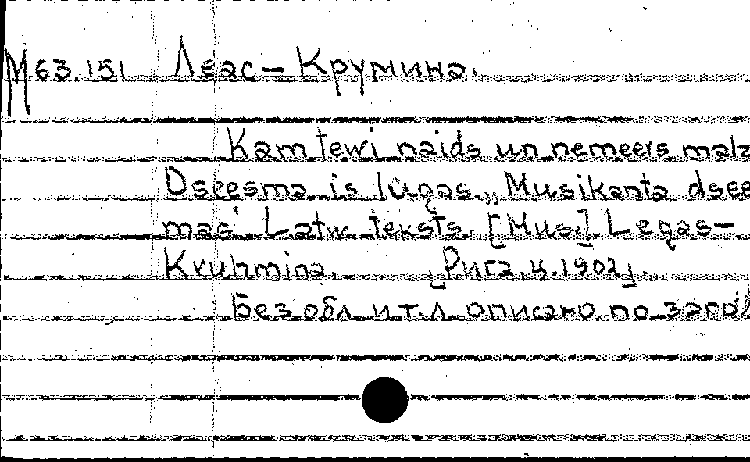 М 63.151 Леас-Крумина.
Kam tewi naids un nemeers malz
Dseesma is lugas „Musikanta dsee
mas" Latw. teksts. [Mus.] Legas-
Kruhmina. [Рига ц.1902].
Без обл. и т.л. описано по загол